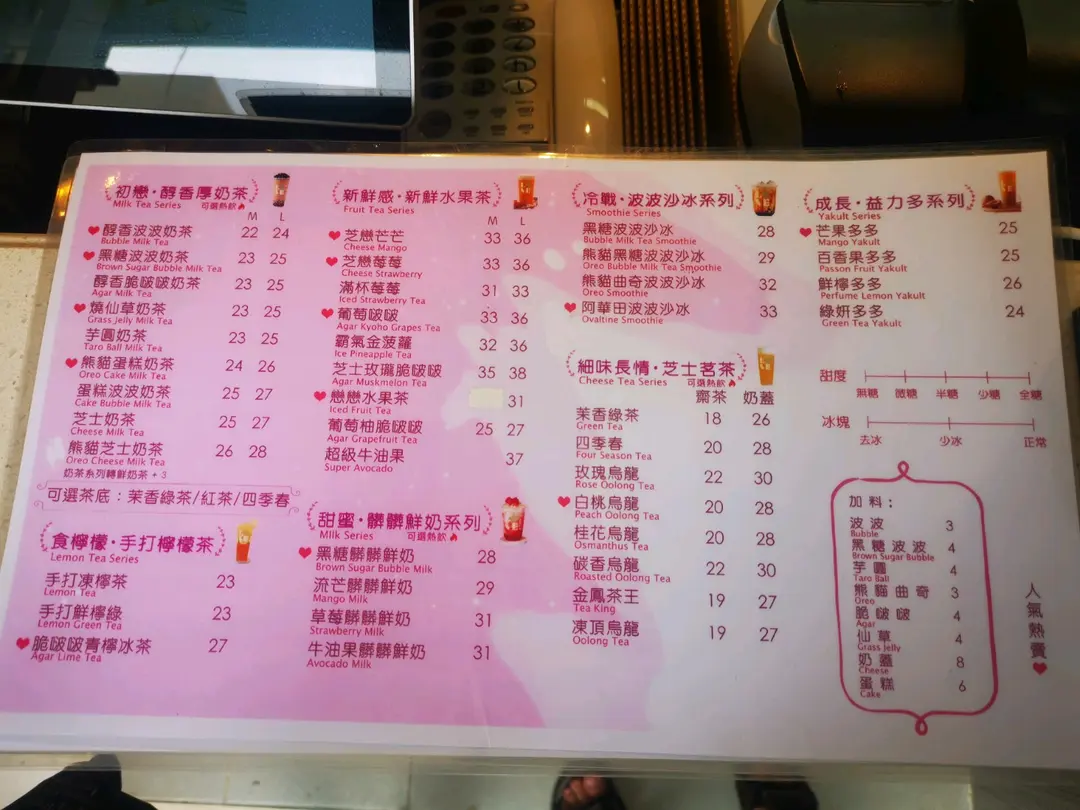 初戀·醇香厚奶茶
Milk Tea Series 可選熱飲
M L
醇香波波奶茶 22 24
Bubble Milk Tea
黑糖波波奶茶 23 25
Brown Sugar Bubble Milk Tea
醇香脆啵啵奶茶 23 25
Agar Milk Tea
燒仙草奶茶 23 25
Grass Jelly Milk Tea
芋圓奶茶 23 25
Taro Ball Milk Tea
熊貓蛋糕奶茶 24 26
Oreo Cake Milk Tea
蛋糕波波奶茶 25 27
Cake Bubble Milk Tea
芝士奶茶 25 27
Cheese Milk Tea
熊貓芝士奶茶 26 28
Oreo Cheese Milk Tea
奶茶系列轉鮮奶茶 + 3
可選茶底：茉香綠茶/紅茶/四季春
食檸檬·手打檸檬茶
Lemon Tea Series
手打凍檸茶 23
Lemon Tea
手打鮮檸綠 23
Lemon Green Tea
脆啵啵青檸冰茶 27
Agar Lime Tea
新鮮感·新鮮水果茶
Fruit Tea Series
M L
芝戀芒芒 33 36
Cheese Mango
芝戀莓莓 33 36
Cheese Strawberry
滿杯莓莓 31 33
Iced Strawberry Tea
葡萄啵啵 33 36
Agar Kyoho Grapes Tea
霸氣金菠蘿 32 36
Ice Pineapple Tea
芝士玫瓏脆啵啵 35 38
Agar Muskmelon Tea
戀戀水果茶 31
Iced Fruit Tea
葡萄柚脆啵啵 25 27
Agar Grapefruit Tea
超級牛油果 37
Super Avocado
甜蜜·髒髒鮮奶系列
Milk Series 可選熱飲
黑糖髒髒鮮奶 28
Brown Sugar Bubble Milk
流芒髒髒鮮奶 29
Mango Milk
草莓髒髒鮮奶 31
Strawberry Milk
牛油果髒髒鮮奶 31
Avocado Milk
冷戰·波波沙冰系列
Smoothie Series
黑糖波波沙冰 28
Bubble Milk Tea Smoothie
熊貓黑糖波波沙冰 29
Oreo Bubble Milk Tea Smoothie
熊貓曲奇波波沙冰 32
Oreo Smoothie
阿華田波波沙冰 33
Ovaltine Smoothie
細味長情·芝士茗茶
Cheese Tea Series 可選熱飲
齋茶 奶蓋
茉香綠茶 18 26
Green Tea
四季春 20 28
Four Season Tea
玫瑰烏龍 22 30
Rose Oolong Tea
白桃烏龍 20 28
Peach Oolong Tea
桂花烏龍 20 28
Osmanthus Tea
碳香烏龍 22 30
Roasted Oolong Tea
金鳳茶王 19 27
Tea King
凍頂烏龍 19 27
Oolong Tea
成長·益力多系列
Yakult Series
芒果多多 25
Mango Yakult
百香果多多 25
Passon Fruit Yakult
鮮檸多多 26
Perfume Lemon Yakult
綠妍多多 24
Green Tea Yakult
甜度
無糖 微糖 半糖 少糖 全糖
冰塊
去冰 少冰 正常
加料：
波波 3
Bubble
黑糖波波 4
Brown Sugar Bubble
芋圓 4
Taro Ball
熊貓曲奇 3
Oreo
脆啵啵 4
Agar
仙草 4
Grass Jelly
奶蓋 8
Cheese
蛋糕 6
Cake
人氣熱賣